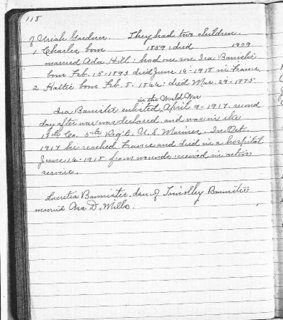 118
of Uriah Gardner. They had two children.
1 Charles born 1859 died 1929
married Ada Hill: had one son Ira Banister
born Feb. 15-1893 died June 16-1918 in France
2 Hattie born Feb. 5. 1862. died Mar. 29-1935.
in the World War
Ira Banister enlisted, April 9-1917. second
day after war was declared, and was in the
Co. 5th Reg't. U.S. Marines. In Oct.
1917 he reached France and died in a hospital
June 16-1918 from wounds received in active
service.
Banister, son of Banister
married D. Mills.